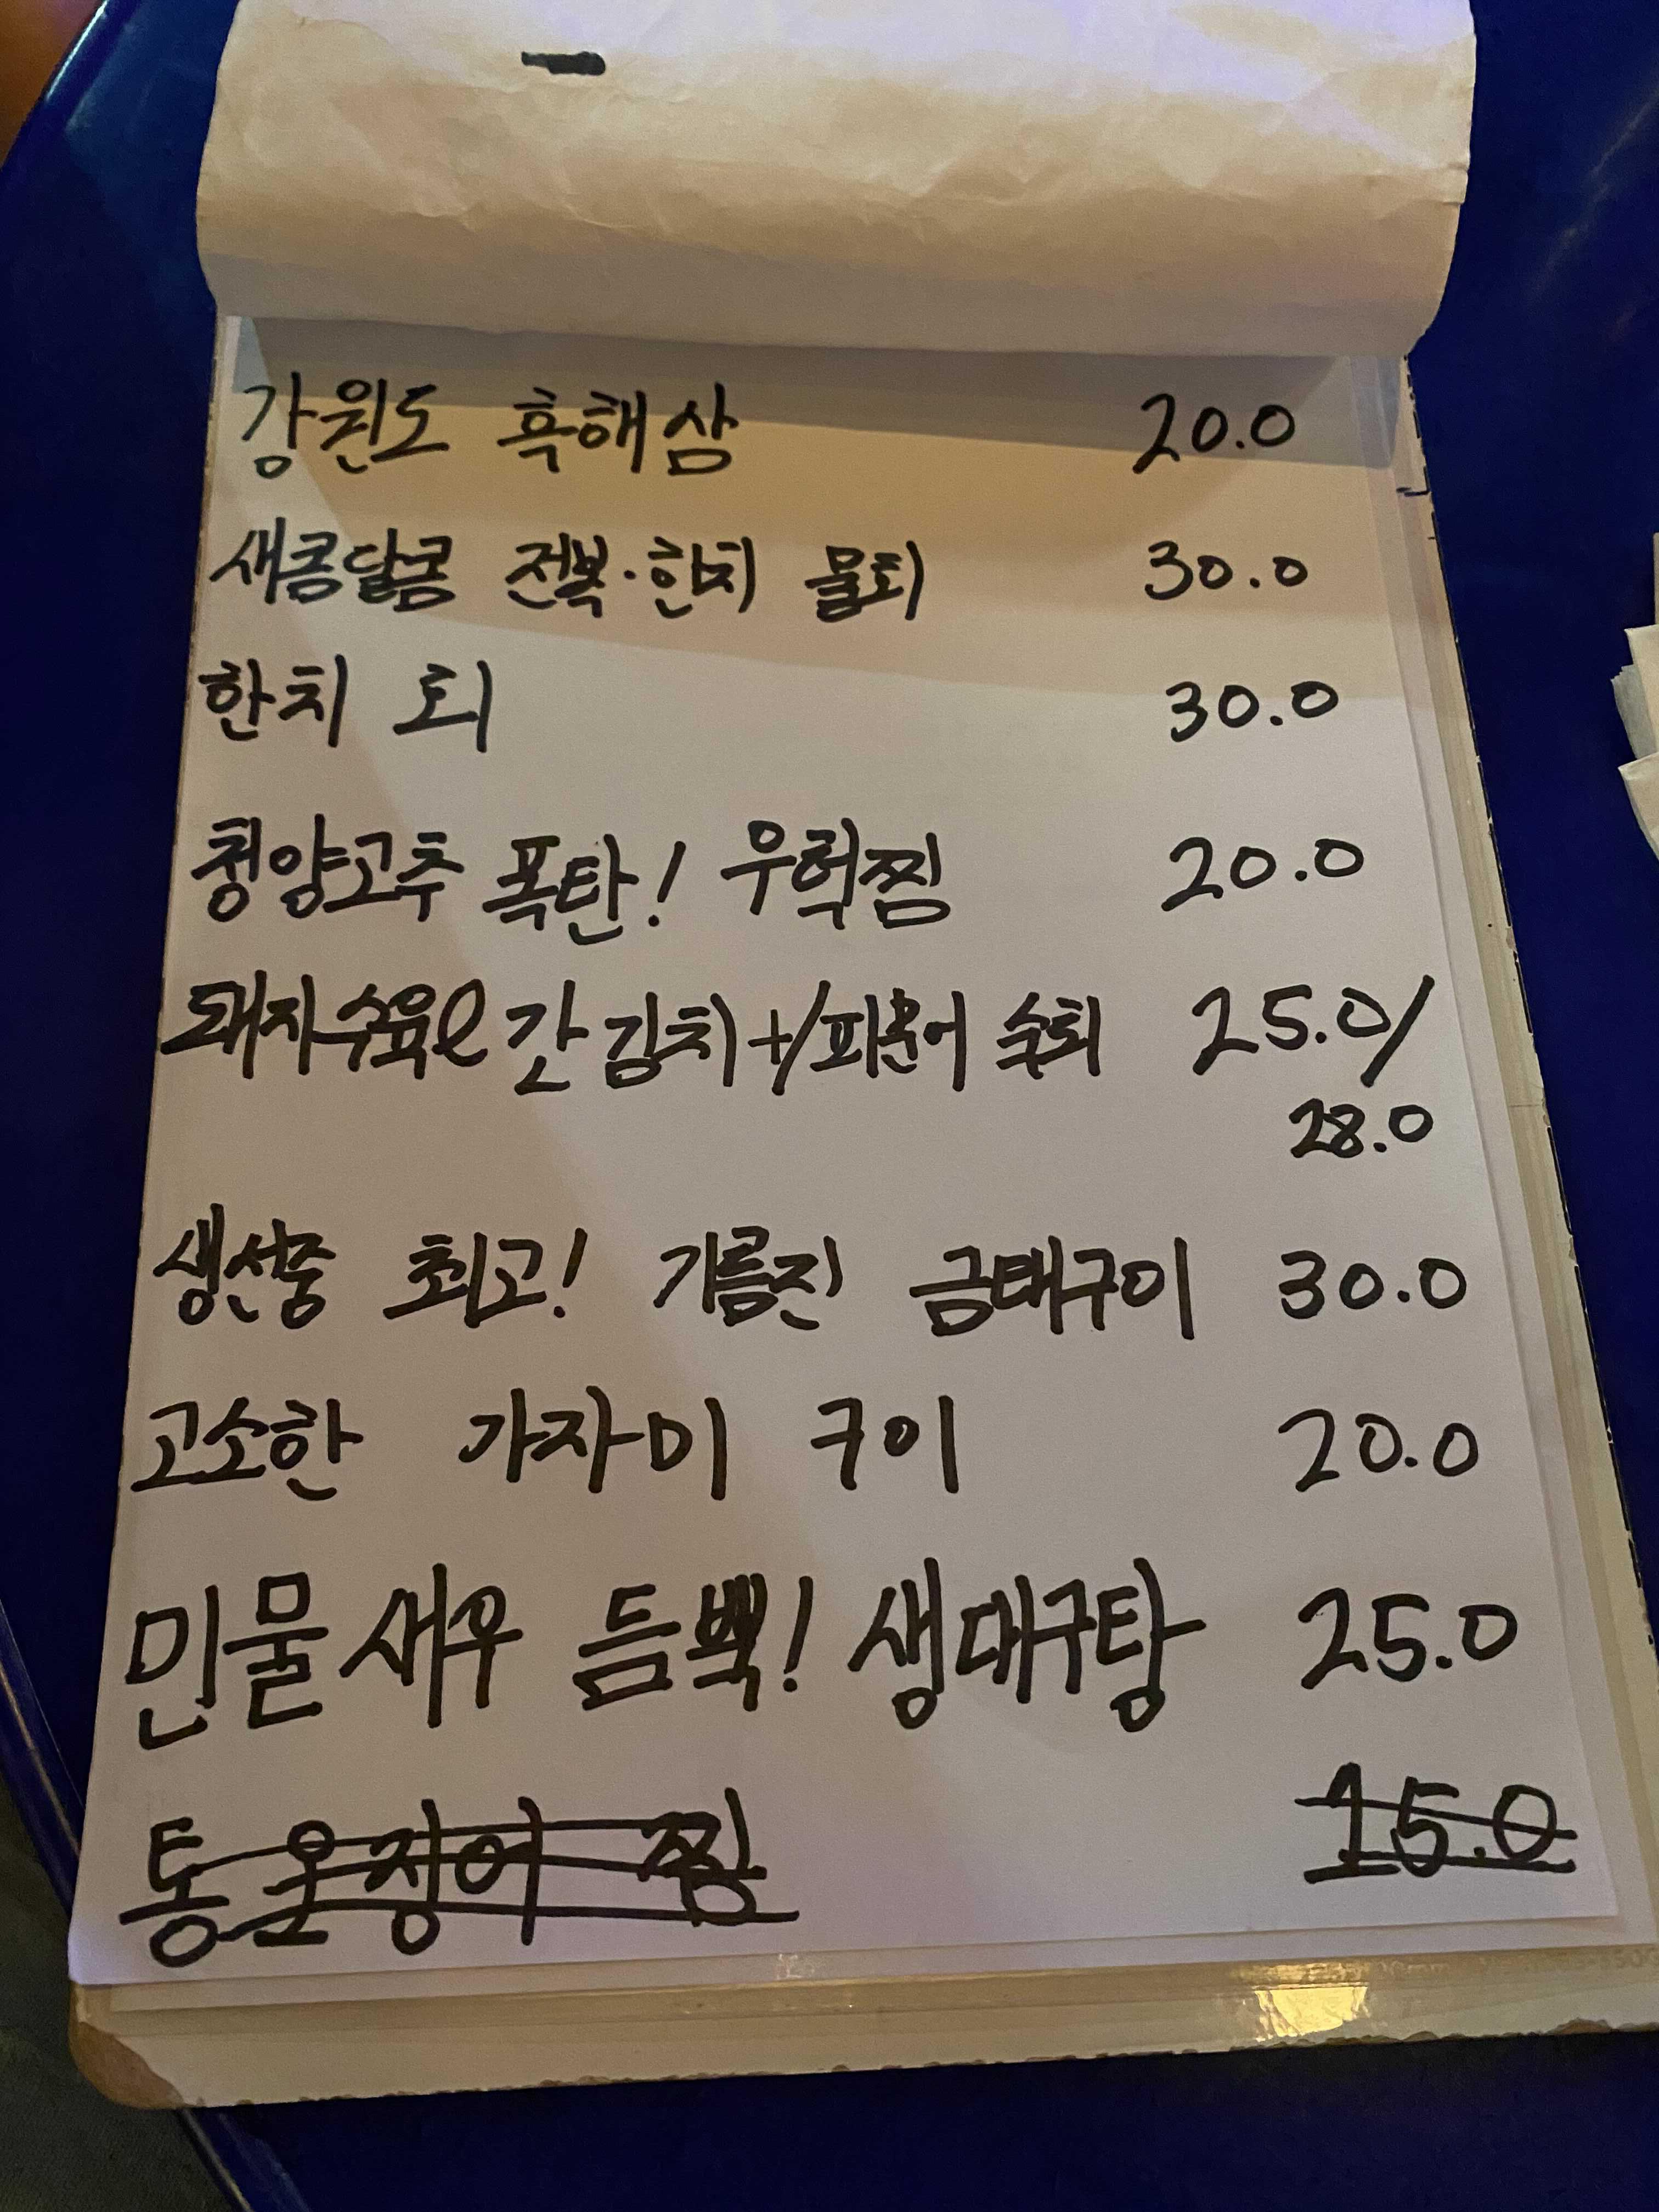 강원도 흑해삼 20.0
새콤달콤 전복·한치 물회 30.0
한치 회 30.0
청양고추 폭탄! 우럭찜 20.0
돼지수육 간김치 +/ 수회 25.0/
28.0
생선중 최고! 기름진 금태구이 30.0
고소한 가자미 구이 20.0
민물새우 듬뿍! 생대구탕 25.0
통오징어 찜 15.0